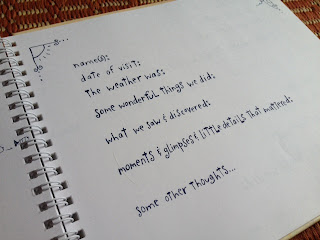 name(s):
date of visit:
the weather was:
some wonderful things we did:
what we saw & discovered:
moments & glimpses & little details that mattered:
some other thoughts...